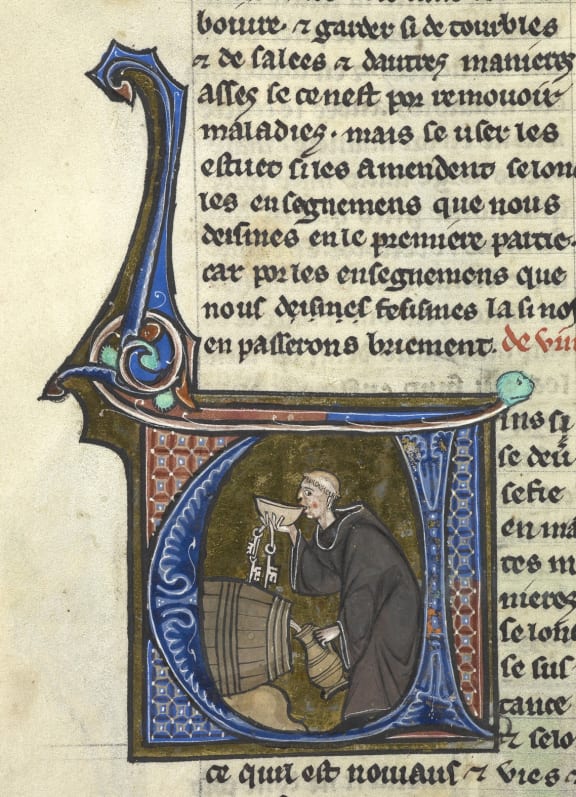 boivre. ⁊ garder si de tourbles
⁊ de salees ⁊ dautres manieres
asses se ce nest por remouoir
maladies. mais se user les
estuet si les amendent selonc
les ensegnemens que nous
desimes en le premiere partie
car por les ensegnemens que
nous desimes fesismes la si nos
en passerons briement. de vin
ins si
se deu
sefie
en ma
tes m
nieres
se lonc
se sus
tance
⁊ selo
ce quil est nouiaus ⁊ vies ⁊